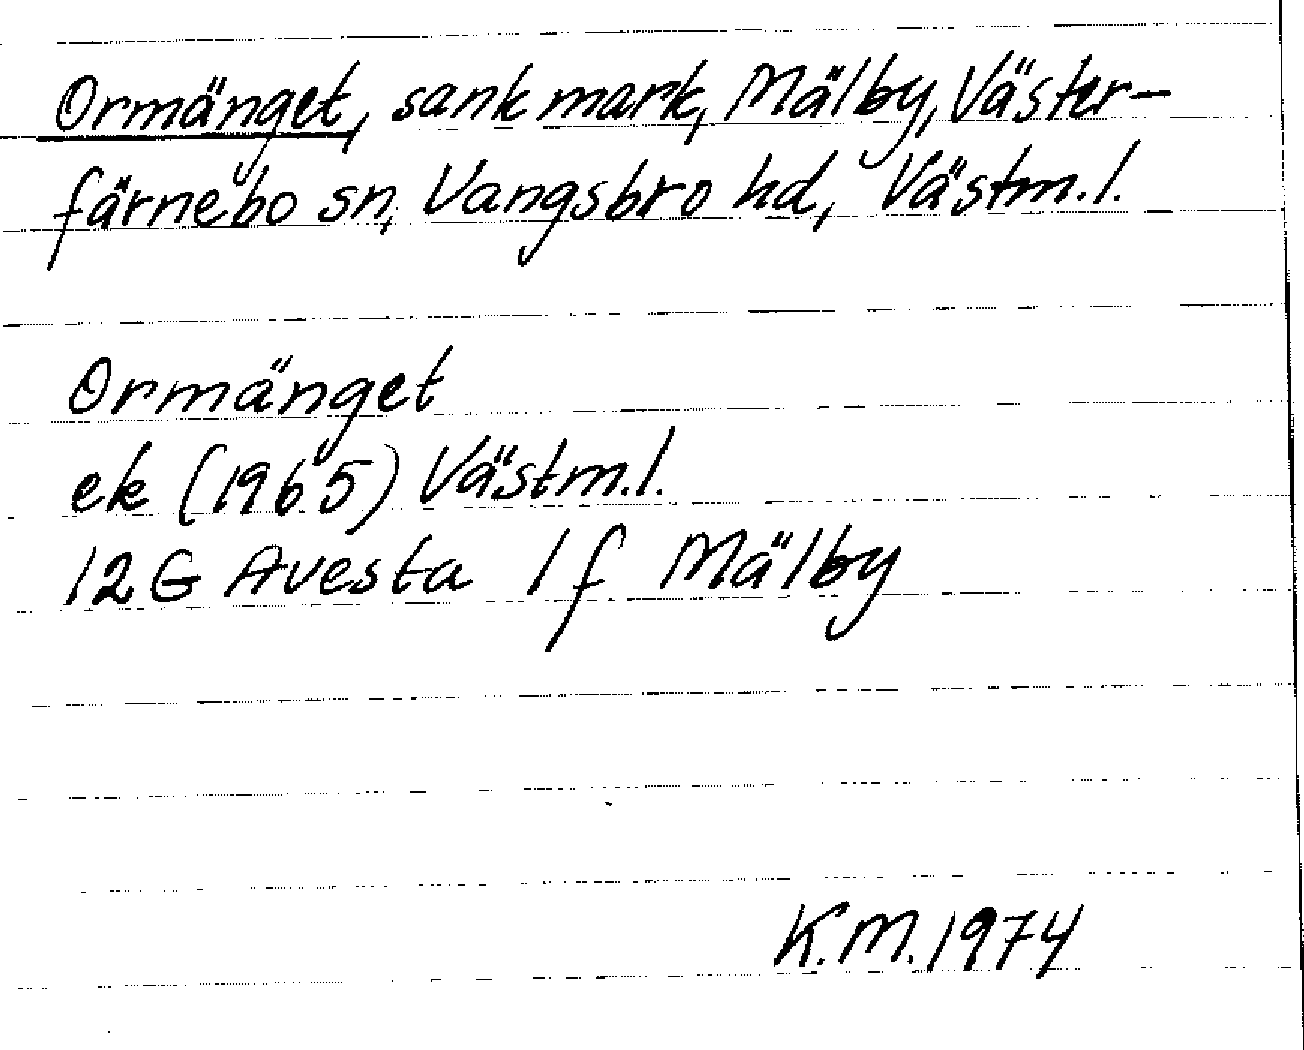 Ormänget, sank mark, Mälby, Väster-
färnebo sn, Vangsbro hd, Västm.l.
Ormänget
ek (1965) Västm.l.
12G Avesta 1f Mälby
K.M.1974